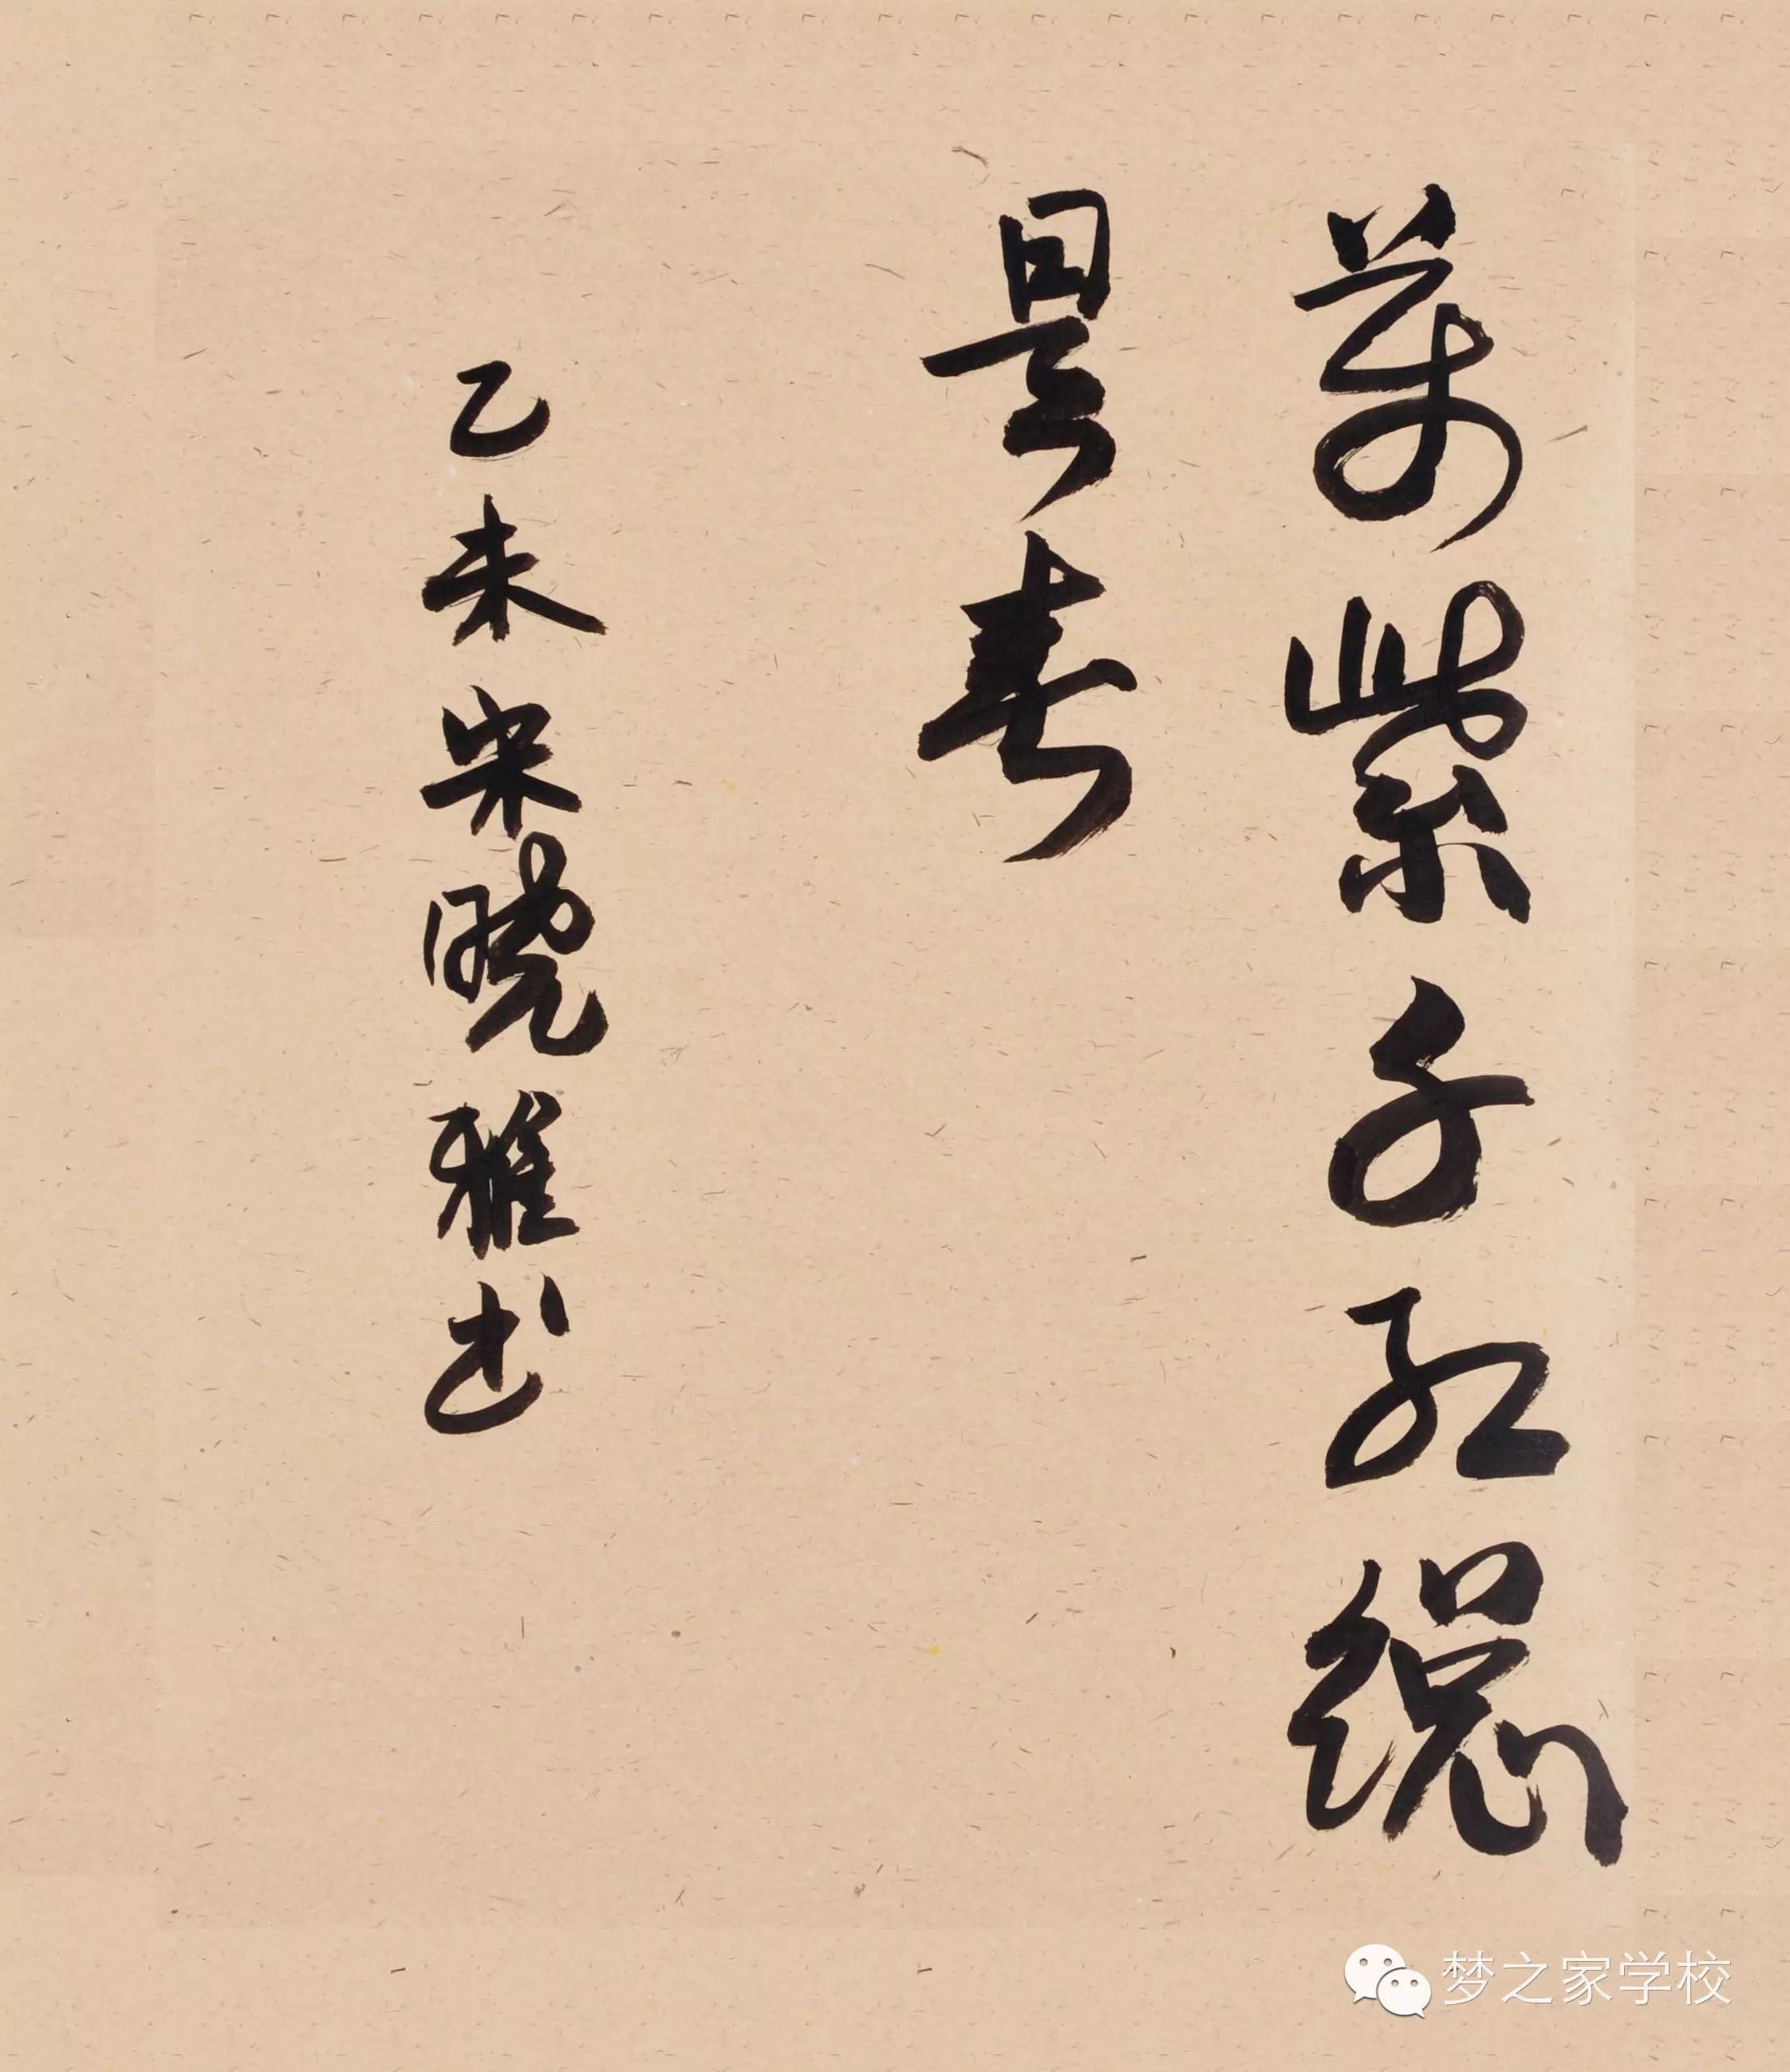 萬紫千红總
是春
乙未宋曉雅书
梦之家学校